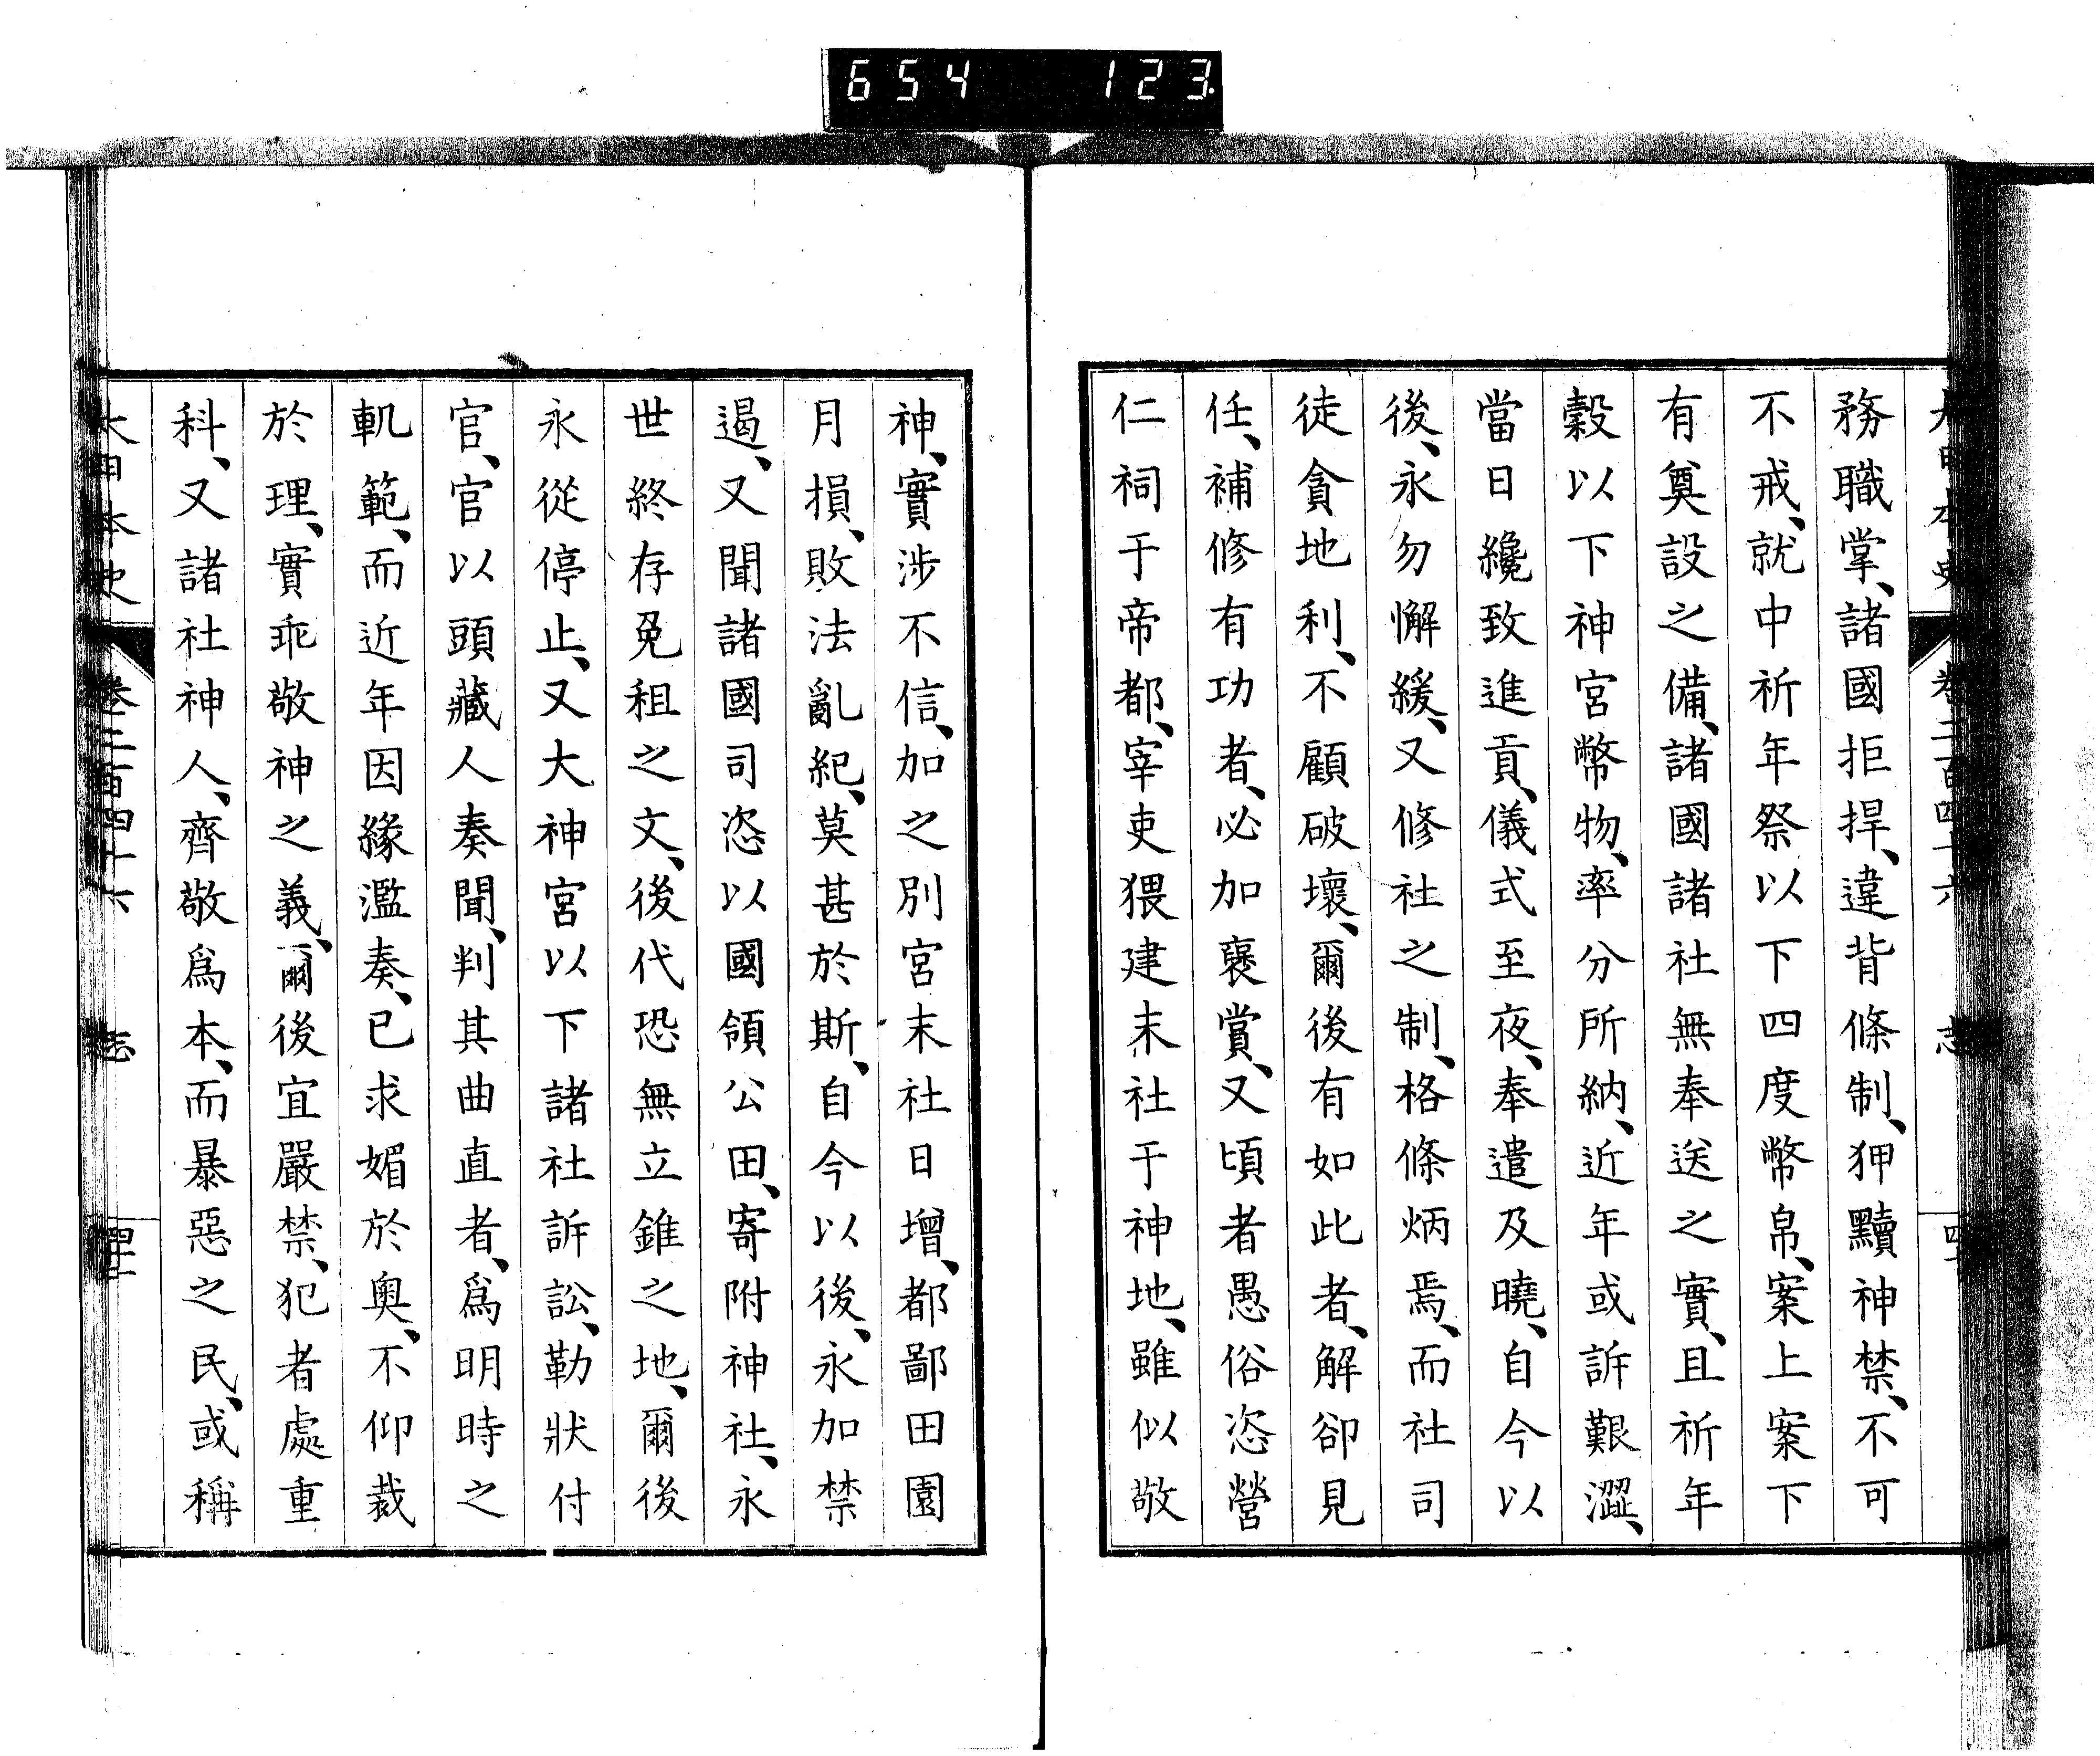 654 123
大日本史 卷二百四十六 志
務職掌、諸國拒捍、違背條制、狎黷神禁、不可
不戒、就中祈年祭以下四度幣帛、案上案下
有奠設之備、諸國諸社無奉送之實、且祈年
穀以下神宮幣物、率分所納、近年或訴艱澀、
當日纔致進貢、儀式至夜、奉遣及曉、自今以
後、永勿懈緩、又修社之制、格條炳焉、而社司
徒貪地利、不顧破壞、爾後有如此者、解卻見
任、補修有功者、必加襃賞、又頃者愚俗恣營
仁祠于帝都、宰吏猥建末社于神地、雖似敬
神、實涉不信、加之別宮末社日增、都鄙田園
月損、敗法亂紀、莫甚於斯、自今以後、永加禁
遏、又聞諸國司恣以國領公田、寄附神社、永
世終存免租之文、後代恐無立錐之地、爾後
永從停止、又大神宮以下諸社訴訟、勒狀付
官、官以頭藏人奏聞、判其曲直者、爲明時之
軌範、而近年因緣濫奏、已求媚於奧、不仰裁
於理、實乖敬神之義、爾後宜嚴禁、犯者處重
科、又諸社神人、齊敬爲本、而暴惡之民、或稱
大日本史 卷二百四十六 志